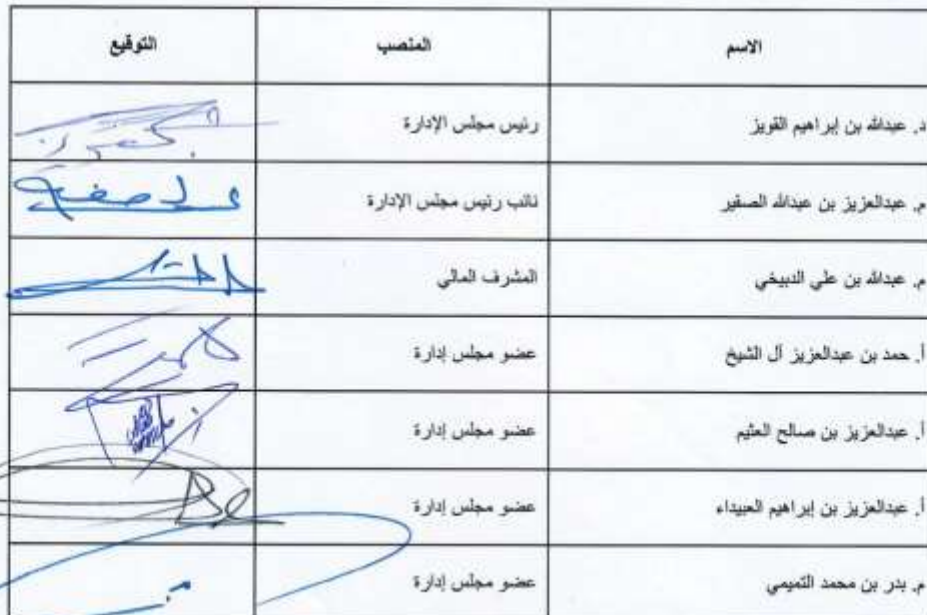 الاسم المنصب التوقيع
د. عبدالله بن إبراهيم القويز رئيس مجلس الإدارة
م. عبدالعزيز بن عبدالله الصغير نائب رئيس مجلس الإدارة
م. عبدالله بن علي الدبيخي المشرف المالي
أ. حمد بن عبدالعزيز آل الشيخ عضو مجلس إدارة
أ. عبدالعزيز بن صالح العثيم عضو مجلس إدارة
أ. عبدالعزيز بن إبراهيم العبيداء عضو مجلس إدارة
م. بدر بن محمد التميمي عضو مجلس إدارة